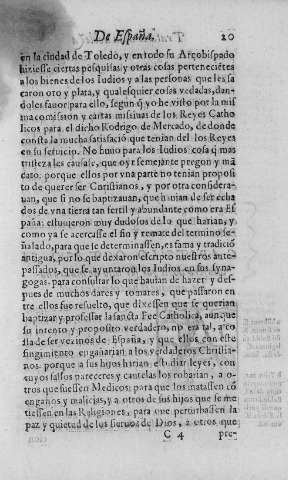 De España. 20
en la ciudad de Toledo, y en todo su Arçobispado
hiziesse ciertas pesquisas y otras cosas pertenecietes
a los bienes de los Iudios y a las personas que les sa
caron oro y plata, y qualesquier cosas vedadas, dan-
doles favor para ello, segun q̃ yo he visto por la mis
ma comission y cartas missiuas de los Reyes Catho
licos para el dicho Rodrigo de Mercado, de donde
consta la mucha satisfació que tenian del los Reyes
en su seruicio. No huuo para los Iudios cosa q̃ mas
tristeza les causasse, que oyr semejante pregon y mã
dato, porque ellos por vna parte no tenian proposi
to de querer ser Christianos, y por otra considera-
uan, que si no se baptizauan, que hauian de ser echa
dos de vna tierra tan fertil y abundante como era Es
paña: estuuieron muy dudosos de lo que harian, y
como ya se acercasse el fin y remate del termino se-
ñalado, para que se determinassen, es fama y tradició
antigua, por lo que dexaron escripto nuestros ante-
passados, que se ayuntaron los Iudios en sus syna-
gogas, para consultar lo que hauian de hazer y des-
pues de muchos dares y tomares, que passaron en
tre ellos fue resuelto, que dixessen que se querian
baptizar y professar la sancta Fee Catholica, aunque
su intento y proposito verdadero, no era tal, a co
sta de ser vezinos de España, y que ellos con este
fingimiento engañarian a los verdaderos Christia-
nos, porque a sus hijos harian estudiar leyes, con
cuyos falsos pareceres y cautelas los robarian, a o-
tros que fuessen Medicos, para que los matassen cõ
engaños y malicias, y a otros de sus hijos que se me
tiessen en las Religiones, para que perturbassen la
paz y quietud de los sieruos de Dios, a otros que
C 4 pre-